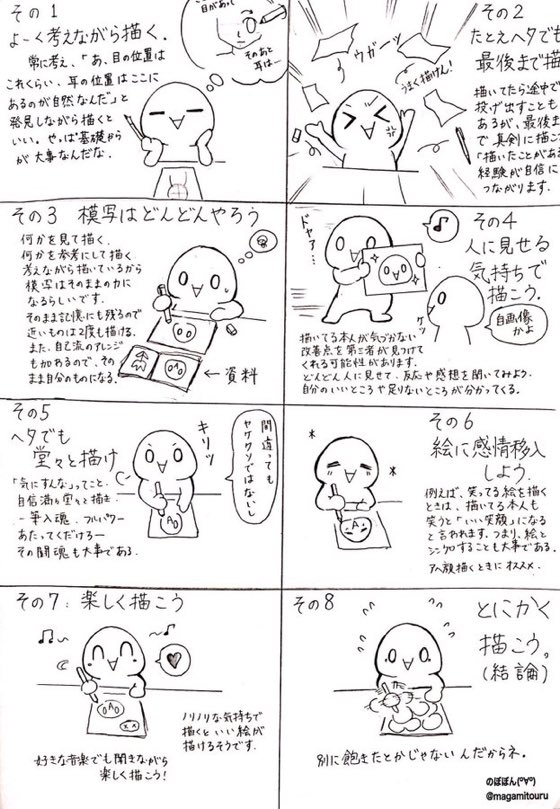 その1
よーく考えながら描く.
常に考え、「あ、目の位置は
これくらい、耳の位置はここに
あるのが自然なんだ」と
発見しながら描くと
いい。やっぱ基礎から
が大事なんだな.
目があって
そのあと
耳は…
その2
たとえヘタでも
最後まで描
描いてたら途中で
投げ出すことも
あるが、最後ま
で真剣に描こ
「描いたことがあ
経験が自信に
つながります.
ウガーッ
うまく描けん!
その3 模写はどんどんやろう
何かを見て描く.
何かを参考にして描く
考えながら描いているから
模写はそのままの力に
なるらしいです.
そのまま記憶にも残るので
近いものは2度も描ける.
また、自己流のアレンジ
も加わるので、その
まま自分のものになる.
← 資料
その4
人に見せる
気持ちで
描こう.
ドヤァ…
自画像
かよ
描いてる本人が気づかない
改善点を第三者が見つけて
くれる可能性があります.
どんどん人に見せて、反応や感想を聞いてみよう.
自分のいいところや足りないところが分かってくる.
その5
ヘタでも
堂々と描け
「気にすんな」ってこと.
自信満々堂々と描き
一筆入魂、フルパワー
あたってくだけろー
その闘魂も大事である.
キリッ
間違っても
ヤケクソではないし
その6
絵に感情移入
しよう.
例えば、笑ってる絵を描く
ときは、描いてる本人も
笑うと「いい笑顔」になる
と言われます. つまり、絵と
シンクロすることも大事である.
アヘ顔描くときにオススメ.
その7: 楽しく描こう
ノリノリな気持ちで
描くといい絵が
描けるそうです.
好きな音楽でも聞きながら
楽しく描こう!
その8
とにかく
描こう。
(結論)
別に飽きたとかじゃないんだからネ.
のぽぽん(°∀°)
@magamitouru